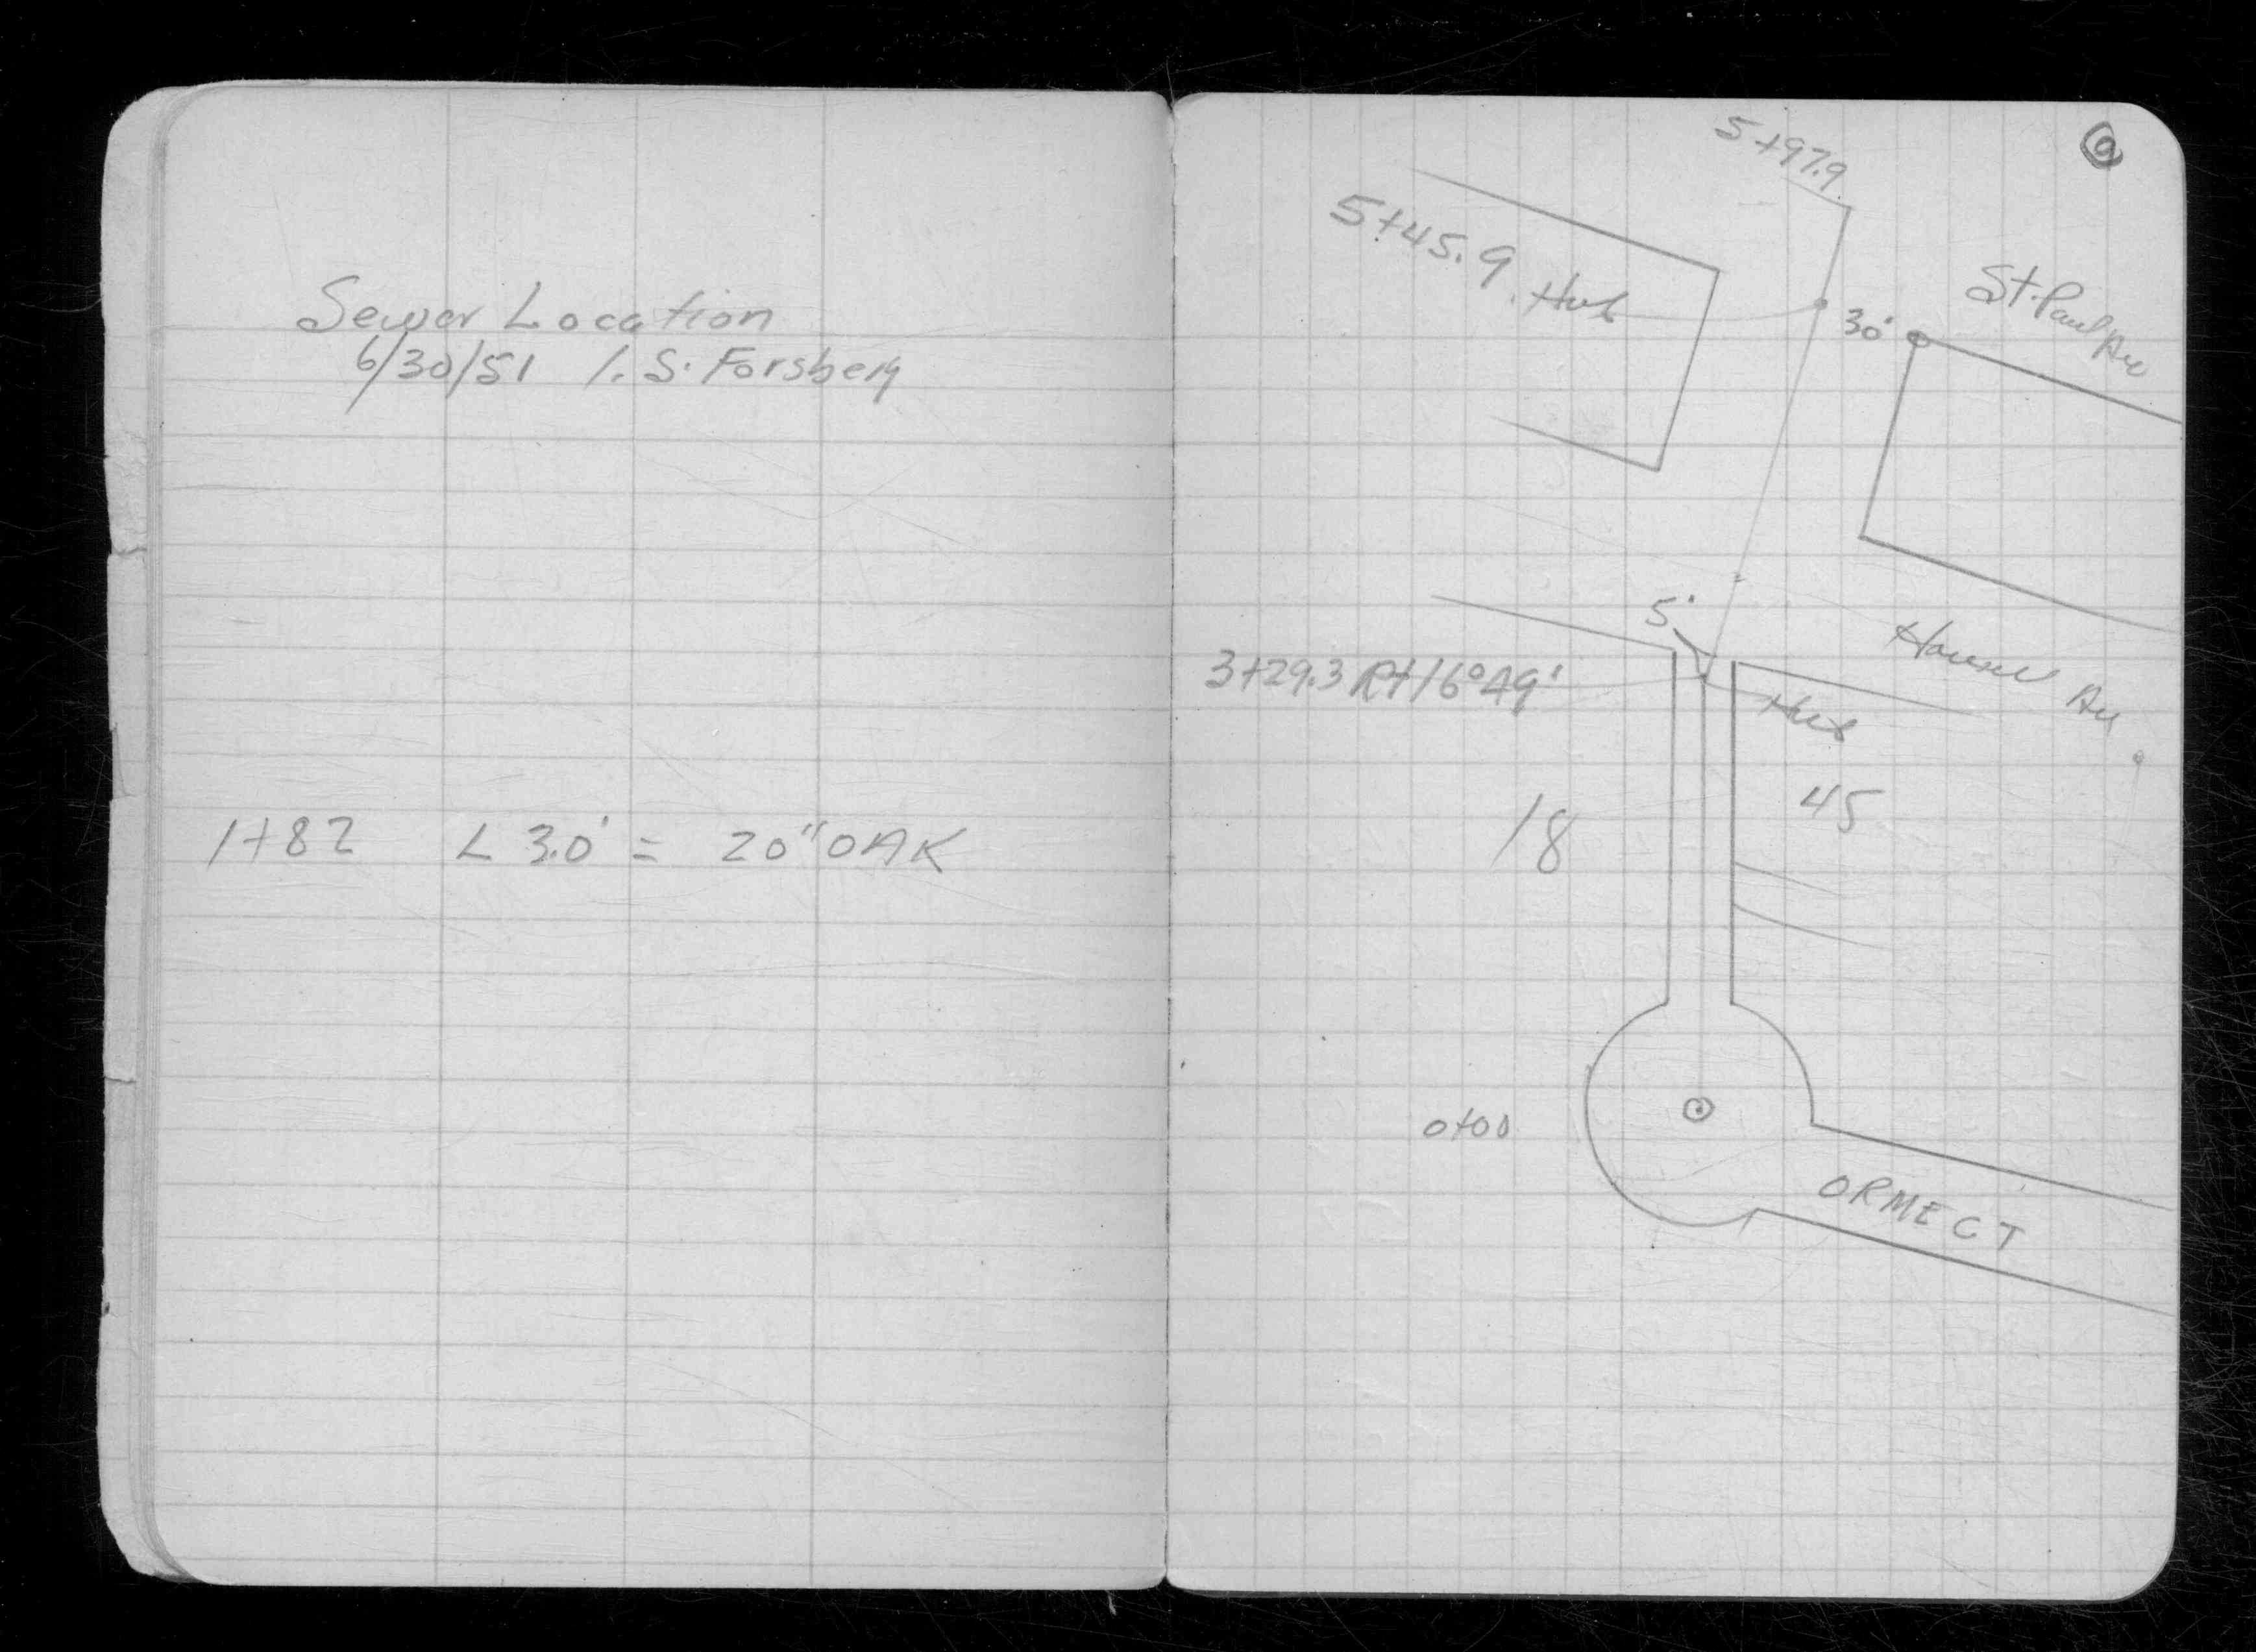 Sewer Location
6/30/51 I. S. Forsberg
1+82 L 3.0' = 20" OAK
5+97.9
5+45.9 Hub
30'
St. Paul Av
5'
3+29.3 Rt 16°49'
Hub
Av
18
45
0+00
ORME CT